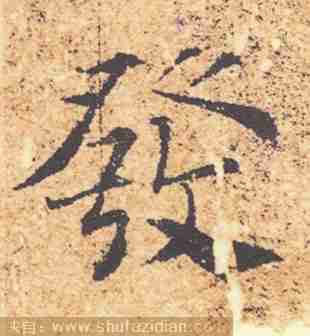 發
来自：www.shufazidian.com